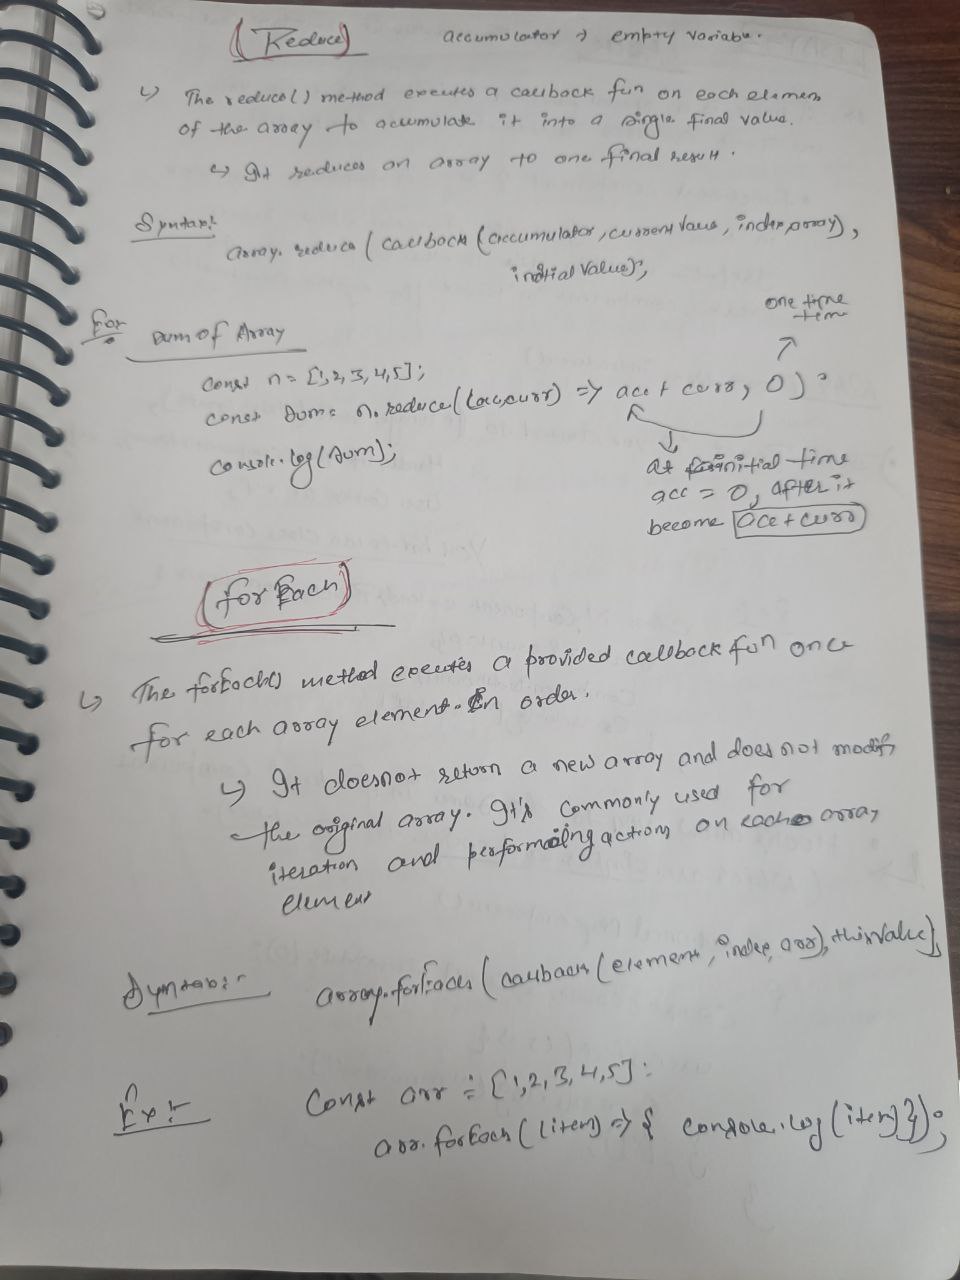 (Reduce)
accumulator → empty variable.
↳ The reduce() method executes a callback fun on each elemen
of the array to acumulate it into a single final value.
↳ It reduces an array to one final result.
Syntax:
array.reduce(callback(accumulator, current Value, index, array),
initial Value);
For
sum of Array
const n = [1, 2, 3, 4, 5];
const sum = n.reduce((acc,curr) => acc + curr, 0);
one time
console.log(sum);
at initial time
acc = 0, after it
become acc + curr
(for Each)
↳ The forEach() method executes a provided callback fun once
for each array element. In order.
↳ It doesnot return a new array and does not modify
the original array. It's commonly used for
iteration and performing actions on each array
element
Syntax:-
array.forEach(callback(element, index, arr), thisValue);
Ex:-
Const arr = [1,2,3,4,5]:
arr.forEach((item) => { console.log(item)});